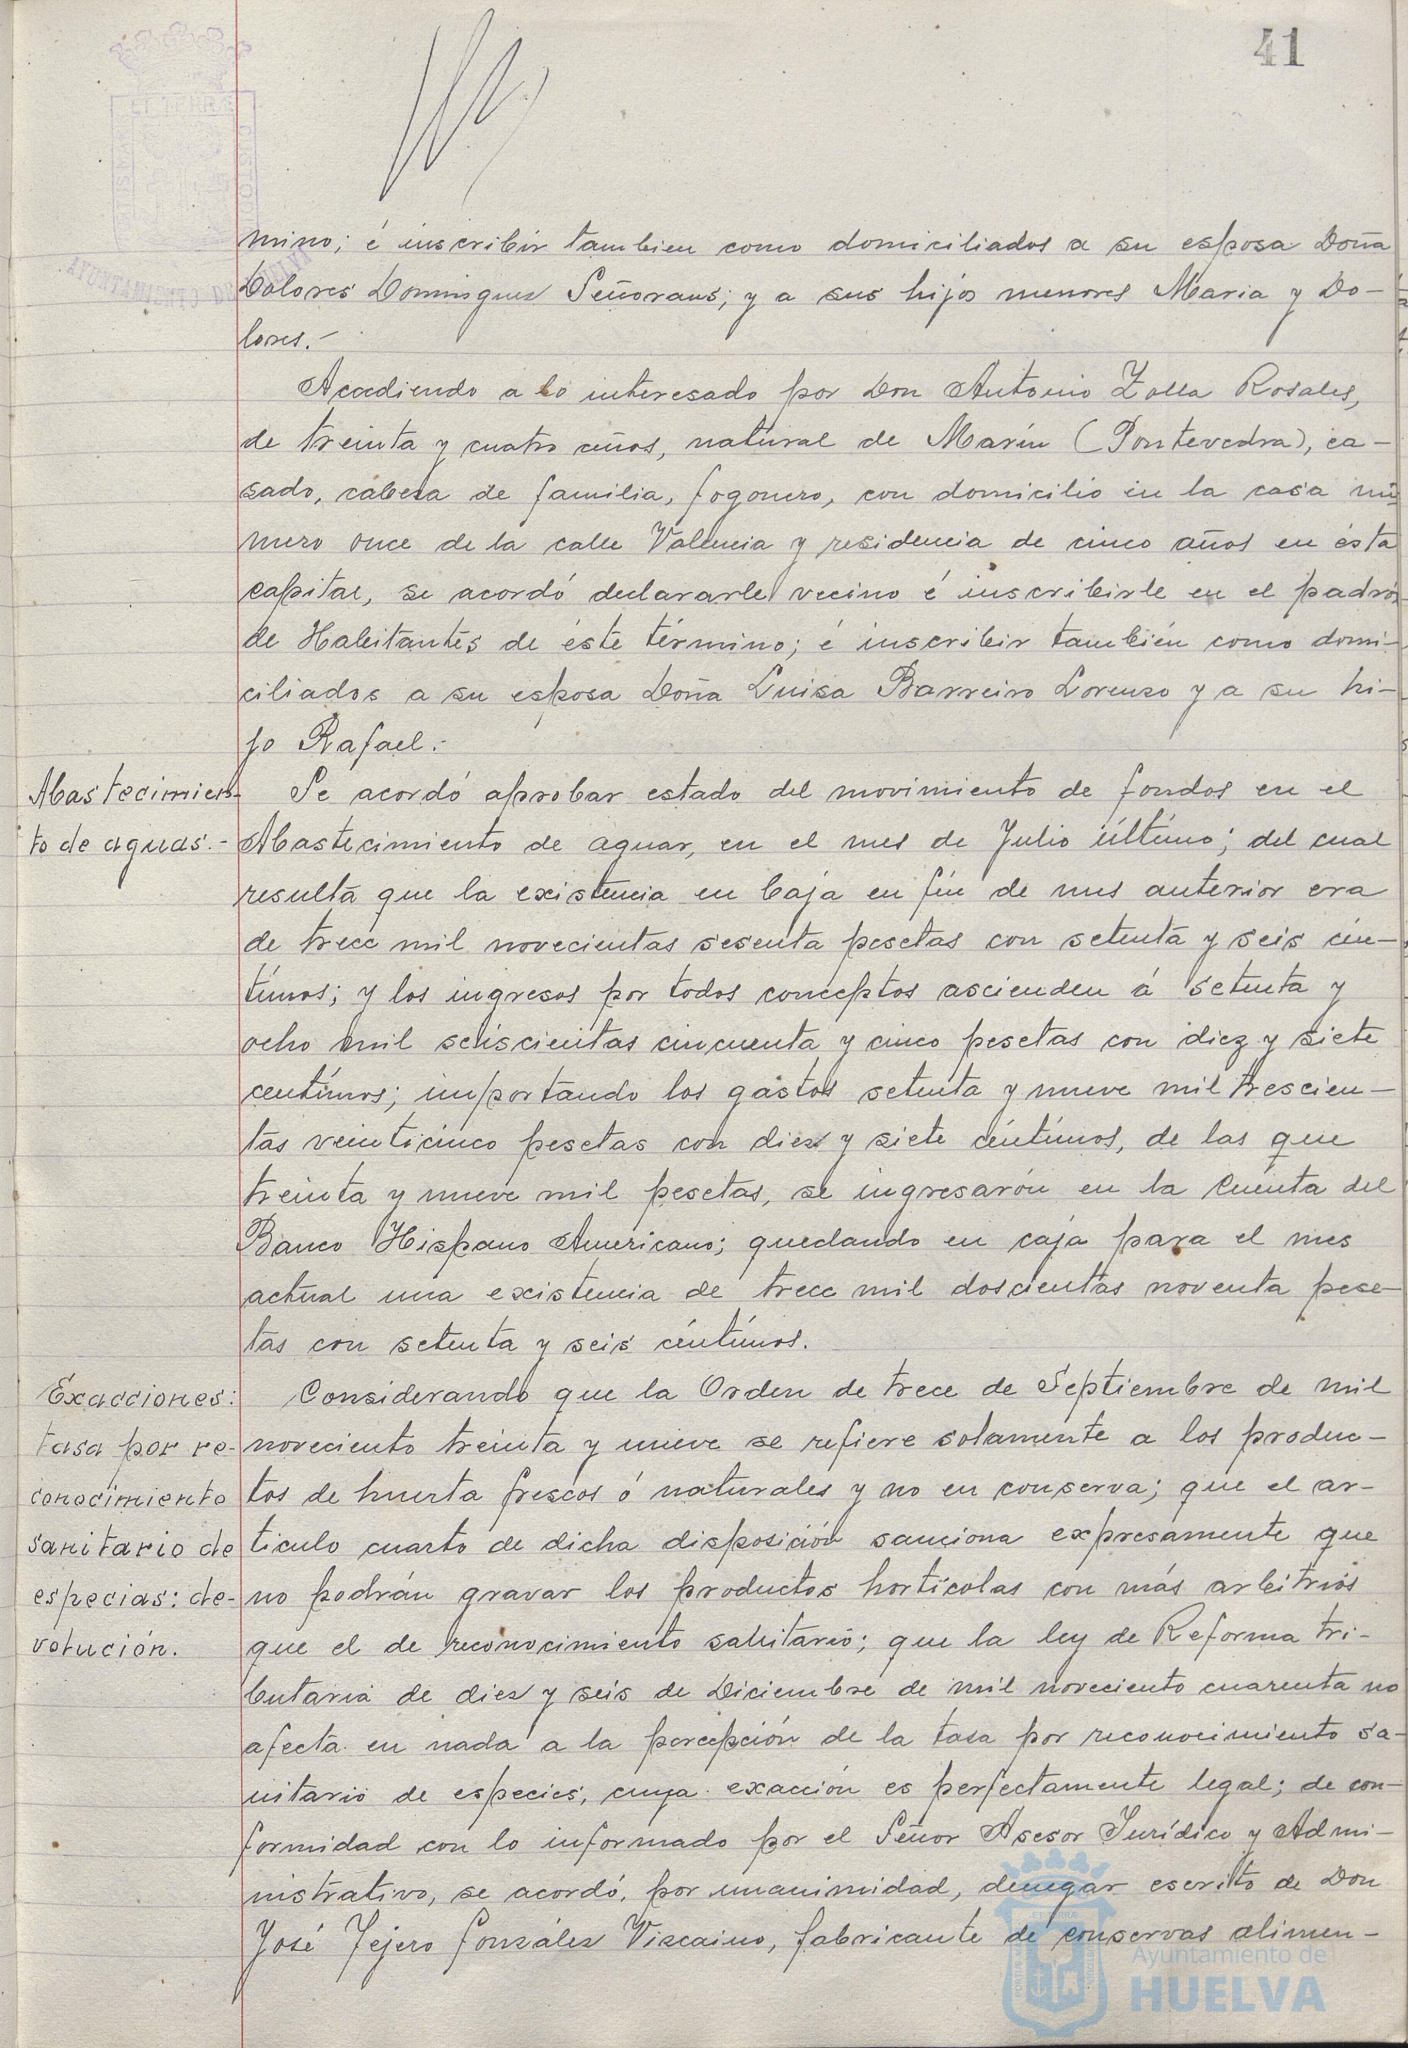 41
mino; é inscribir tambien como domiciliados a su esposa Doña
Dolores Dominguez Señorans; y a sus hijos menores Maria y Do-
lores.-
Accediendo a lo interesado por Don Antonio Zolla Rosales,
de treinta y cuatro años, natural de Marín (Pontevedra), ca-
sado, cabeza de familia, fogonero, con domicilio en la casa nú-
mero once de la calle Valencia y residencia de cinco años en ésta
capital, se acordó declararle vecino é inscribirle en el padrón
de Habitantes de éste término; é inscribir también como domi-
ciliados a su esposa Doña Luisa Barreiro Lorenzo y a su hi-
jo Rafael.-
Abastecimien-
to de aguas.-
Se acordó aprobar estado del movimiento de fondos en el
Abastecimiento de aguar, en el mes de Julio último; del cual
resulta que la existencia en Caja en fin de mes anterior era
de trece mil novecientas sesenta pesetas con setenta y seis cén-
timos; y los ingresos por todos conceptos ascienden á setenta y
ocho mil seiscientas cincuenta y cinco pesetas con diez y siete
centimos; importando los gastos setenta y nueve mil trescien-
tas veinticinco pesetas con diez y siete céntimos, de las que
treinta y nueve mil pesetas, se ingresarón en la Cuenta del
Banco Hispano Americano; quedando en caja para el mes
actual una existencia de trece mil doscientas noventa pese-
tas con setenta y seis céntimos.
Exacciones:
tasa por re-
conocimiento
sanitario de
especias: de-
volución.
Considerando que la Orden de trece de Septiembre de mil
noveciento treinta y nueve se refiere solamente a los produc-
tos de huerta frescos ó naturales y no en conserva; que el ar-
ticulo cuarto de dicha disposición sanciona expresamente que
no podrán gravar los productos hortícolas con más arbitrios
que el de reconocimiento sanitario; que la ley de Reforma tri-
butaria de diez y seis de Diciembre de mil noveciento cuarenta no
afecta en nada a la percepción de la tasa por reconocimiento sa-
nitario de especies, cuya exacción es perfectamente legal; de con-
formidad con lo informado por el Señor Asesor Jurídico y Admi-
nistrativo, se acordó, por unanimidad, denegar escrito de Don
José Tejero González Vizcaino, fabricante de conservas alimen-
Ayuntamiento de
HUELVA